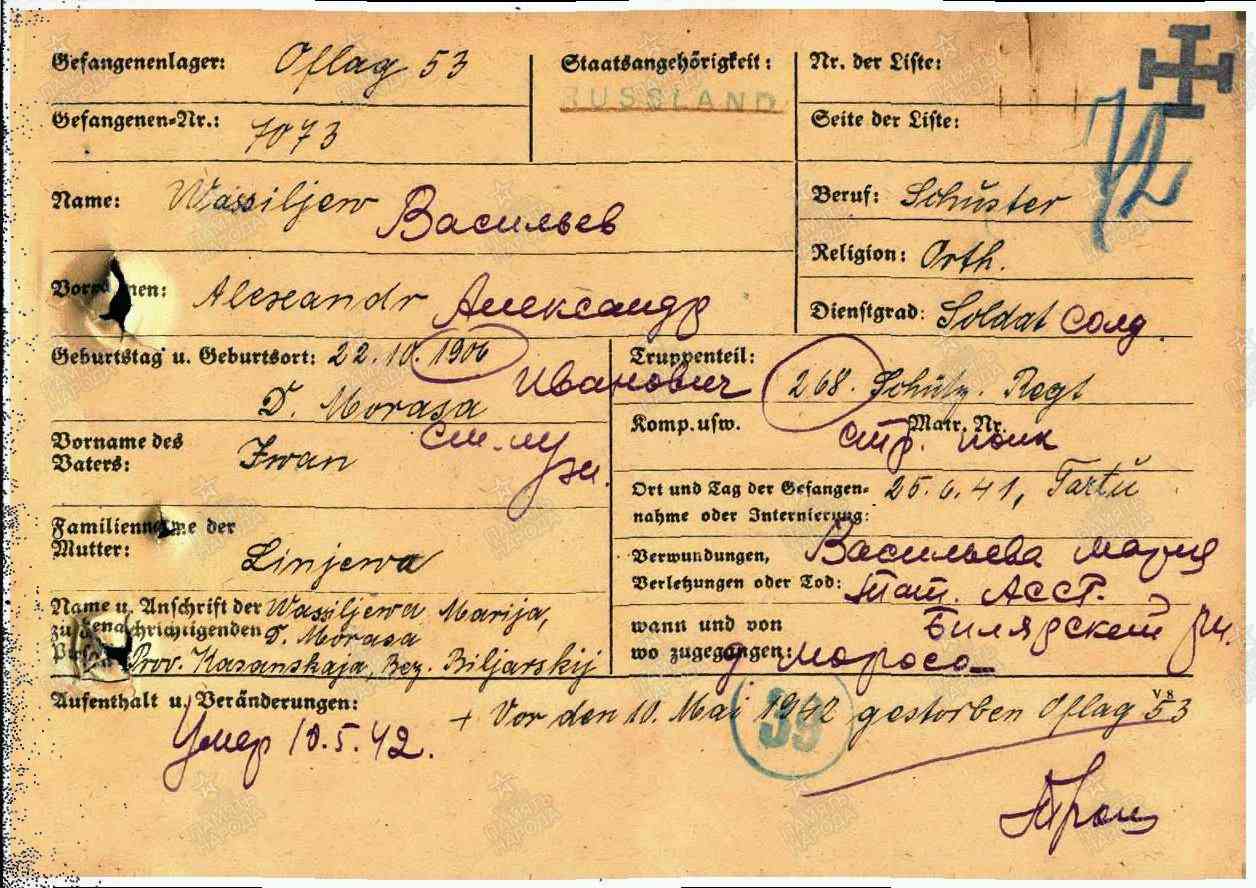 Gefangenenlager: Oflag 53
Staatsangehörigkeit: RUSSLAND
Nr. der Liste:
Gefangenen-Nr.: 7073
Seite der Liste:
72
Name: Wassiljew Васильев
Beruf: Schuster
Religion: Orth.
Vornamen: Alexandr Александр
Dienstgrad: Soldat солд
Geburtstag u. Geburtsort: 22.10.1906
Иванович
D. Morasa
Truppenteil: 268. Schütz. Regt
Komp. usw. Matr. Nr.
стр. полк
Vorname des
Vaters: Iwan
Ort und Tag der Gefangen- 25.6.41, Tartu
nahme oder Internierung:
Familienname der
Mutter: Linjewa
Verwundungen, Васильева Мария
Verletzungen oder Tod: Тат. АССР.
Name u. Anschrift der Wassiljewa Marija,
zu benachrichtigenden D. Morasa
Person: Prov. Kasanskaja, Bez. Biljarskij
wann und von Билярский
wo zugegangen: д. Мороса
Aufenthalt u. Veränderungen:
+ Vor den 10. Mai 1942 gestorben Oflag 53
V 8
Умер 10.5.42.
39
ПАМЯТЬ НАРОДА